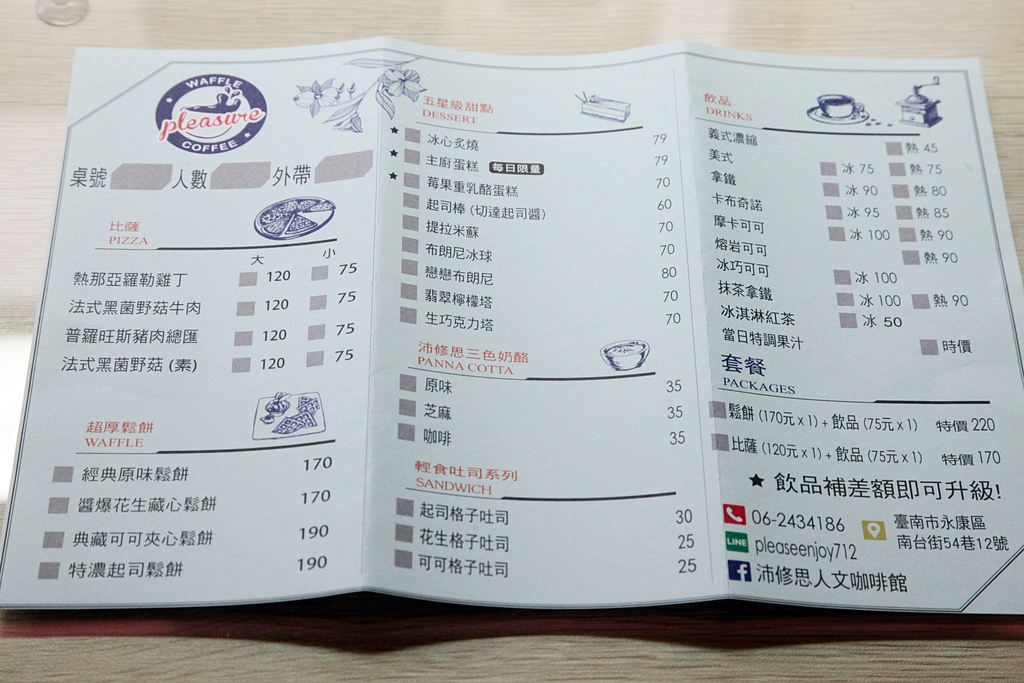 WAFFLE
pleasure
COFFEE
桌號 人數 外帶
比薩
PIZZA
大 小
熱那亞羅勒雞丁 120 75
法式黑菌野菇牛肉 120 75
普羅旺斯豬肉總匯 120 75
法式黑菌野菇 (素) 120 75
超厚鬆餅
WAFFLE
經典原味鬆餅 170
醬爆花生藏心鬆餅 170
典藏可可夾心鬆餅 190
特濃起司鬆餅 190
五星級甜點
DESSERT
★ 冰心炙燒 79
★ 主廚蛋糕 每日限量 79
★ 莓果重乳酪蛋糕 70
起司棒 (切達起司醬) 60
提拉米蘇 70
布朗尼冰球 70
戀戀布朗尼 80
翡翠檸檬塔 70
生巧克力塔 70
沛修思三色奶酪
PANNA COTTA
原味 35
芝麻 35
咖啡 35
輕食吐司系列
SANDWICH
起司格子吐司 30
花生格子吐司 25
可可格子吐司 25
飲品
DRINKS
義式濃縮 熱 45
美式 冰 75 熱 75
拿鐵 冰 90 熱 80
卡布奇諾 冰 95 熱 85
摩卡可可 冰 100 熱 90
熔岩可可 熱 90
冰巧可可 冰 100
抹茶拿鐵 冰 100 熱 90
冰淇淋紅茶 冰 50
當日特調果汁 時價
套餐
PACKAGES
鬆餅 (170元 x 1) + 飲品 (75元 x 1) 特價 220
比薩 (120元 x 1) + 飲品 (75元 x 1) 特價 170
★ 飲品補差額即可升級!
06-2434186
LINE pleaseenjoy712
f 沛修思人文咖啡館
臺南市永康區
南台街54巷12號